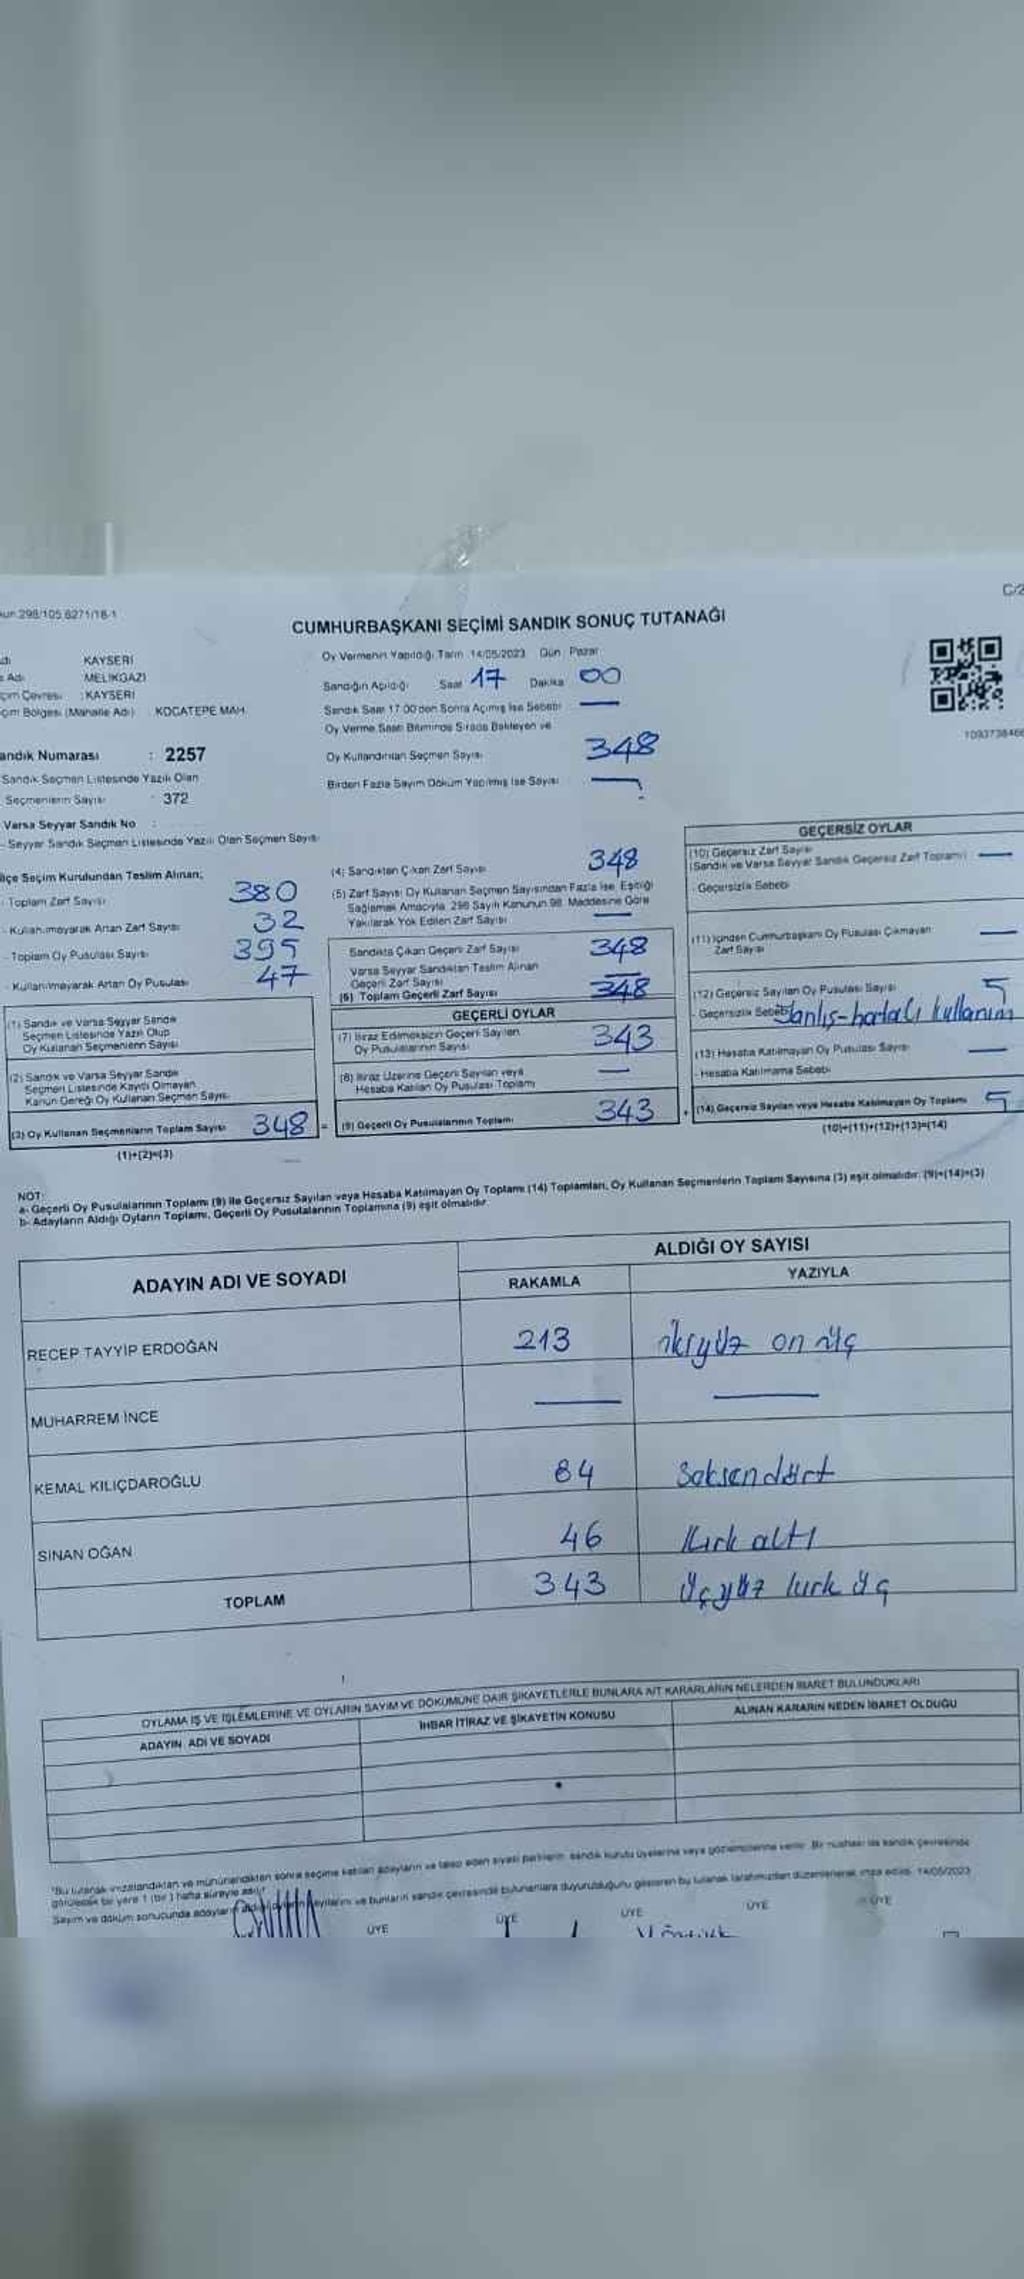 298/105.6271/18-1
C/2
CUMHURBAŞKANI SEÇİMİ SANDIK SONUÇ TUTANAĞI
KAYSERİ
Adı MELİKGAZİ
Çevresi : KAYSERİ
Bölgesi (Mahalle Adı) KOCATEPE MAH.
Sandık Numarası : 2257
Sandık Seçmen Listesinde Yazılı Olan
Seçmenlerin Sayısı : 372
Varsa Seyyar Sandık No :
- Seyyar Sandık Seçmen Listesinde Yazılı Olan Seçmen Sayısı
Oy Vermenin Yapıldığı Tarih :14/05/2023 Gün : Pazar
Sandığın Açıldığı Saat 17 Dakika 00
Sandık Saat 17:00'den Sonra Açılmış İse Sebebi —
Oy Verme Saati Bitiminde Sırada Bekleyen ve
Oy Kullandırılan Seçmen Sayısı 348
Birden Fazla Sayım Döküm Yapılmış İse Sayısı —
İlçe Seçim Kurulundan Teslim Alınan;
- Toplam Zarf Sayısı 380
- Kullanılmayarak Artan Zarf Sayısı 32
- Toplam Oy Pusulası Sayısı 395
- Kullanılmayarak Artan Oy Pusulası 47
(1) Sandık ve Varsa Seyyar Sandık
Seçmen Listesinde Yazılı Olup
Oy Kullanan Seçmenlerin Sayısı
(2) Sandık ve Varsa Seyyar Sandık
Seçmen Listesinde Kayıtlı Olmayan
Kanun Gereği Oy Kullanan Seçmen Sayısı
(3) Oy Kullanan Seçmenlerin Toplam Sayısı 348 =
(1)+(2)=(3)
(4) Sandıktan Çıkan Zarf Sayısı 348
(5) Zarf Sayısı Oy Kullanan Seçmen Sayısından Fazla İse, Eşitliği
Sağlamak Amacıyla, 298 Sayılı Kanunun 98. Maddesine Göre
Yakılarak Yok Edilen Zarf Sayısı —
Sandıkta Çıkan Geçerli Zarf Sayısı 348
Varsa Seyyar Sandıktan Teslim Alınan
Geçerli Zarf Sayısı —
(6) Toplam Geçerli Zarf Sayısı 348
GEÇERLİ OYLAR
(7) İtiraz Edilmeksizin Geçerli Sayılan
Oy Pusulalarının Sayısı 343
(8) İtiraz Üzerine Geçerli Sayılan veya
Hesaba Katılan Oy Pusulası Toplamı —
(9) Geçerli Oy Pusulalarının Toplamı 343 +
GEÇERSİZ OYLAR
(10) Geçersiz Zarf Sayısı
(Sandık ve Varsa Seyyar Sandık Geçersiz Zarf Toplamı) —
- Geçersizlik Sebebi
(11) İçinden Cumhurbaşkanı Oy Pusulası Çıkmayan
Zarf Sayısı —
(12) Geçersiz Sayılan Oy Pusulası Sayısı 5
- Geçersizlik Sebebi Yanlış-hatalı kullanım
(13) Hesaba Katılmayan Oy Pusulası Sayısı —
- Hesaba Katılmama Sebebi
(14) Geçersiz Sayılan veya Hesaba Katılmayan Oy Toplamı 5
(10)+(11)+(12)+(13)=(14)
NOT:
a- Geçerli Oy Pusulalarının Toplamı (9) ile Geçersiz Sayılan veya Hesaba Katılmayan Oy Toplamı (14) Toplamları, Oy Kullanan Seçmenlerin Toplam Sayısına (3) eşit olmalıdır. (9)+(14)=(3)
b- Adayların Aldığı Oyların Toplamı, Geçerli Oy Pusulalarının Toplamına (9) eşit olmalıdır.
ADAYIN ADI VE SOYADI
ALDIĞI OY SAYISI
RAKAMLA YAZIYLA
RECEP TAYYİP ERDOĞAN 213 ikiyüz on üç
MUHARREM İNCE — —
KEMAL KILIÇDAROĞLU 84 Seksendört
SİNAN OĞAN 46 Kırk altı
TOPLAM 343 Üçyüz kırk üç
OYLAMA İŞ VE İŞLEMLERİNE VE OYLARIN SAYIM VE DÖKÜMÜNE DAİR ŞİKAYETLERLE BUNLARA AİT KARARLARIN NELERDEN İBARET BULUNDUKLARI
ADAYIN ADI VE SOYADI İHBAR İTİRAZ VE ŞİKAYETİN KONUSU ALINAN KARARIN NEDEN İBARET OLDUĞU
"Bu tutanak imzalandıktan ve mühürlendikten sonra seçime katılan adayların ve talep eden siyasi partilerin sandık kurulu üyelerine veya gözlemcilerine verilir. Bir nüshası da sandık çevresinde
görülecek bir yere 1 (bir) hafta süreyle asılır."
Sayım ve döküm sonucunda adayların aldığı oyların sayılarını ve bunların sandık çevresinde bulunanlara duyurulduğunu gösteren bu tutanak tarafımızdan düzenlenerek imza edildi. 14/05/2023
ÜYE ÜYE ÜYE ÜYE ÜYE